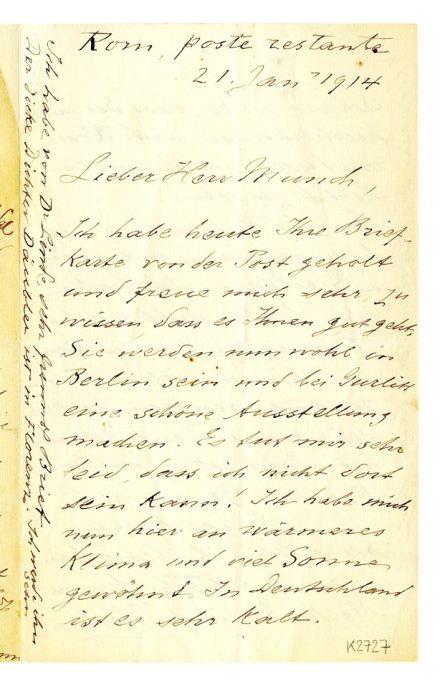 Rom, poste restante
21. Jan 1914
Lieber Herr Munch,
Ich habe heute Ihre Brief-
Karte von der Post geholt
und freue mich sehr zu
wissen, dass es Ihnen gut geht.
Sie werden nun wohl in
Berlin sein und bei Gurlitt
eine schöne Ausstellung
machen. Es tut mir sehr
leid, dass ich nicht dort
sein kann! Ich habe mich
nun hier an wärmeres
Klima und viel Sonne
gewöhnt. In Deutschland
ist es sehr kalt.
Ich habe von Dr Linde sehr Brief
Der dicke Dichter Däubler ist in Florenz. Ich werde ihn
sehn
K2727